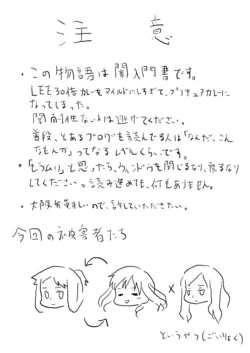 注意
・この物語は闇入門書です。
LEE30倍カレーをマイルドにしすぎて、プリキュアカレーに
なってしまった。
闇耐性ない人は逃げてください。
普段、とあるブログを読んでる人は「なんだ、こん
なもんか」ってなるレベルくらいです。
・「もうムリ」と思ったら、ウィンドウを閉じるなり、戻るなり
してください。読み進めても、何もありません。
・大阪弁
許していただきたい。
今回の被害者たち
×
というやつ(ごいりょく)